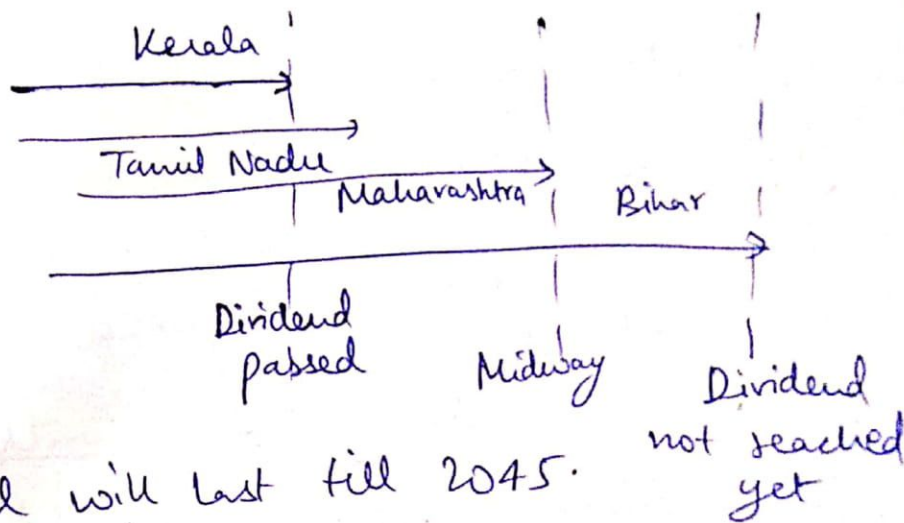 Kerala
Tamil Nadu
Maharashtra
Bihar
Dividend
passed
Midway
Dividend
not reached
yet
will last till 2045.